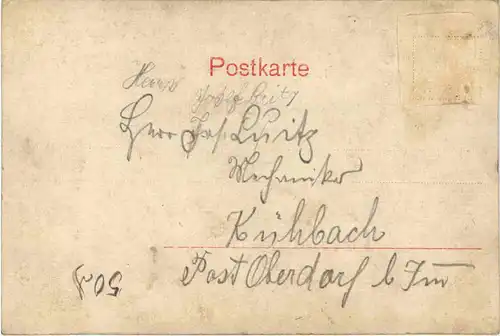 Postkarte
Herrn
Josef
Herr Jos. Luitz
Mechaniker
Kühbach
Post Oberdorf b Imm
50